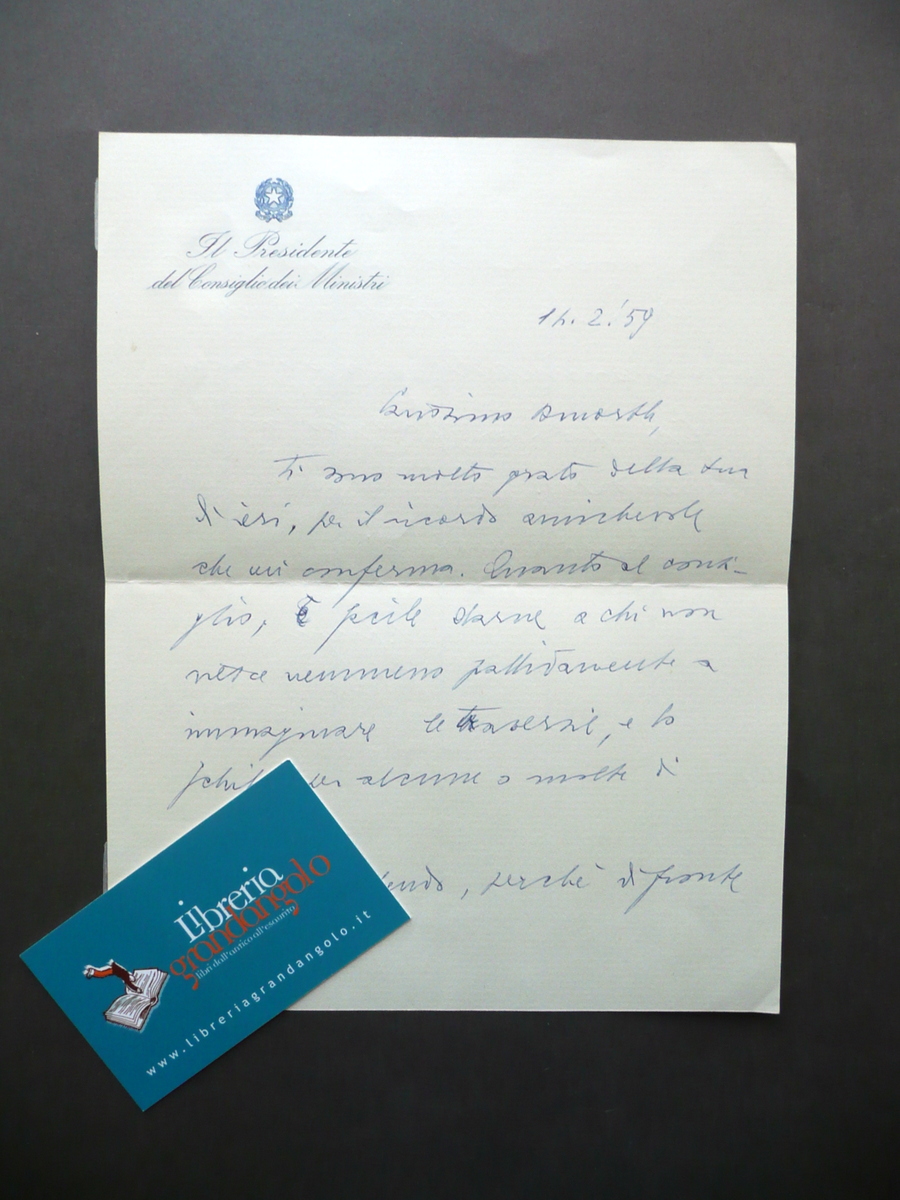 Il Presidente
del Consiglio dei Ministri
2.'59
Carissimo Amorth,
Ti sono molto grato della tua
di ieri, per il ricordo amichevole
che mi conferma. Quanto al consi-
glio, È facile darne a chi non
riesce nemmeno pallidamente a
immaginare le traversie, e lo
per alcune o molte di
perchè di fronte
Libreria
grandangolo
libri dall'antico all'esaurito
www.libreriagrandangolo.it